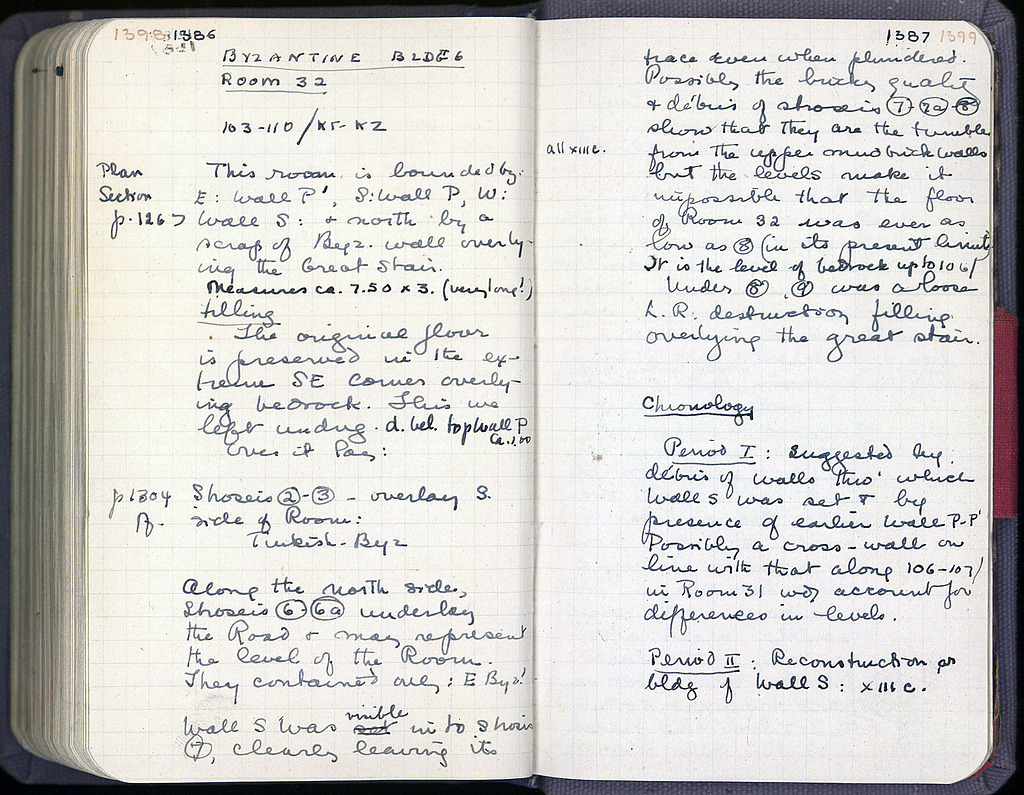 1398 1386
BYZANTINE BLDG 6
ROOM 32
103-110/ΚΕ-ΚΖ
Plan
Section
p. 126
This room is bounded by:
E: Wall P', S: Wall P, W:
Wall S: & north by a
scrap of Byz. wall overly-
ing the Great Stair.
Measures ca. 7.50 x 3. (very long!)
filling
The original floor
is preserved in the ex-
treme SE corner overly-
ing bedrock. This we
left undug. d. bel. top Wall P
ca. 1.00
Over it lay:
p 1304
Stroseis ②-③ - overlay S.
side of Room:
Turkish-Byz
Along the north side,
Stroseis ⑥-(6a) underlay
the Road & may represent
the level of the Room.
They contained only: E Byz!
Wall S was visible in to Strosis
⑦, clearly leaving its
1387 1399
trace even when plundered.
Possibly the bricky quality
& débris of stroseis ⑦-(7a)-⑧
all XIII c.
show that they are the tumble
from the upper mudbrick walls
but the levels make it
impossible that the floor
of Room 32 was ever as
low as ⑧ (in its present limits)
It is the level of bedrock up to 106/
Under ⑧, ⑨ was a loose
L.R. destruction filling
overlying the great stair.
Chronology
Period I: Suggested by
débris of walls thro' which
Wall S was set & by
presence of earlier Wall P-P'
Possibly a cross-wall on
line with that along 106-107/
in Room 31 wd account for
differences in levels.
Period II: Reconstruction or
bldg of Wall S: XIII c.